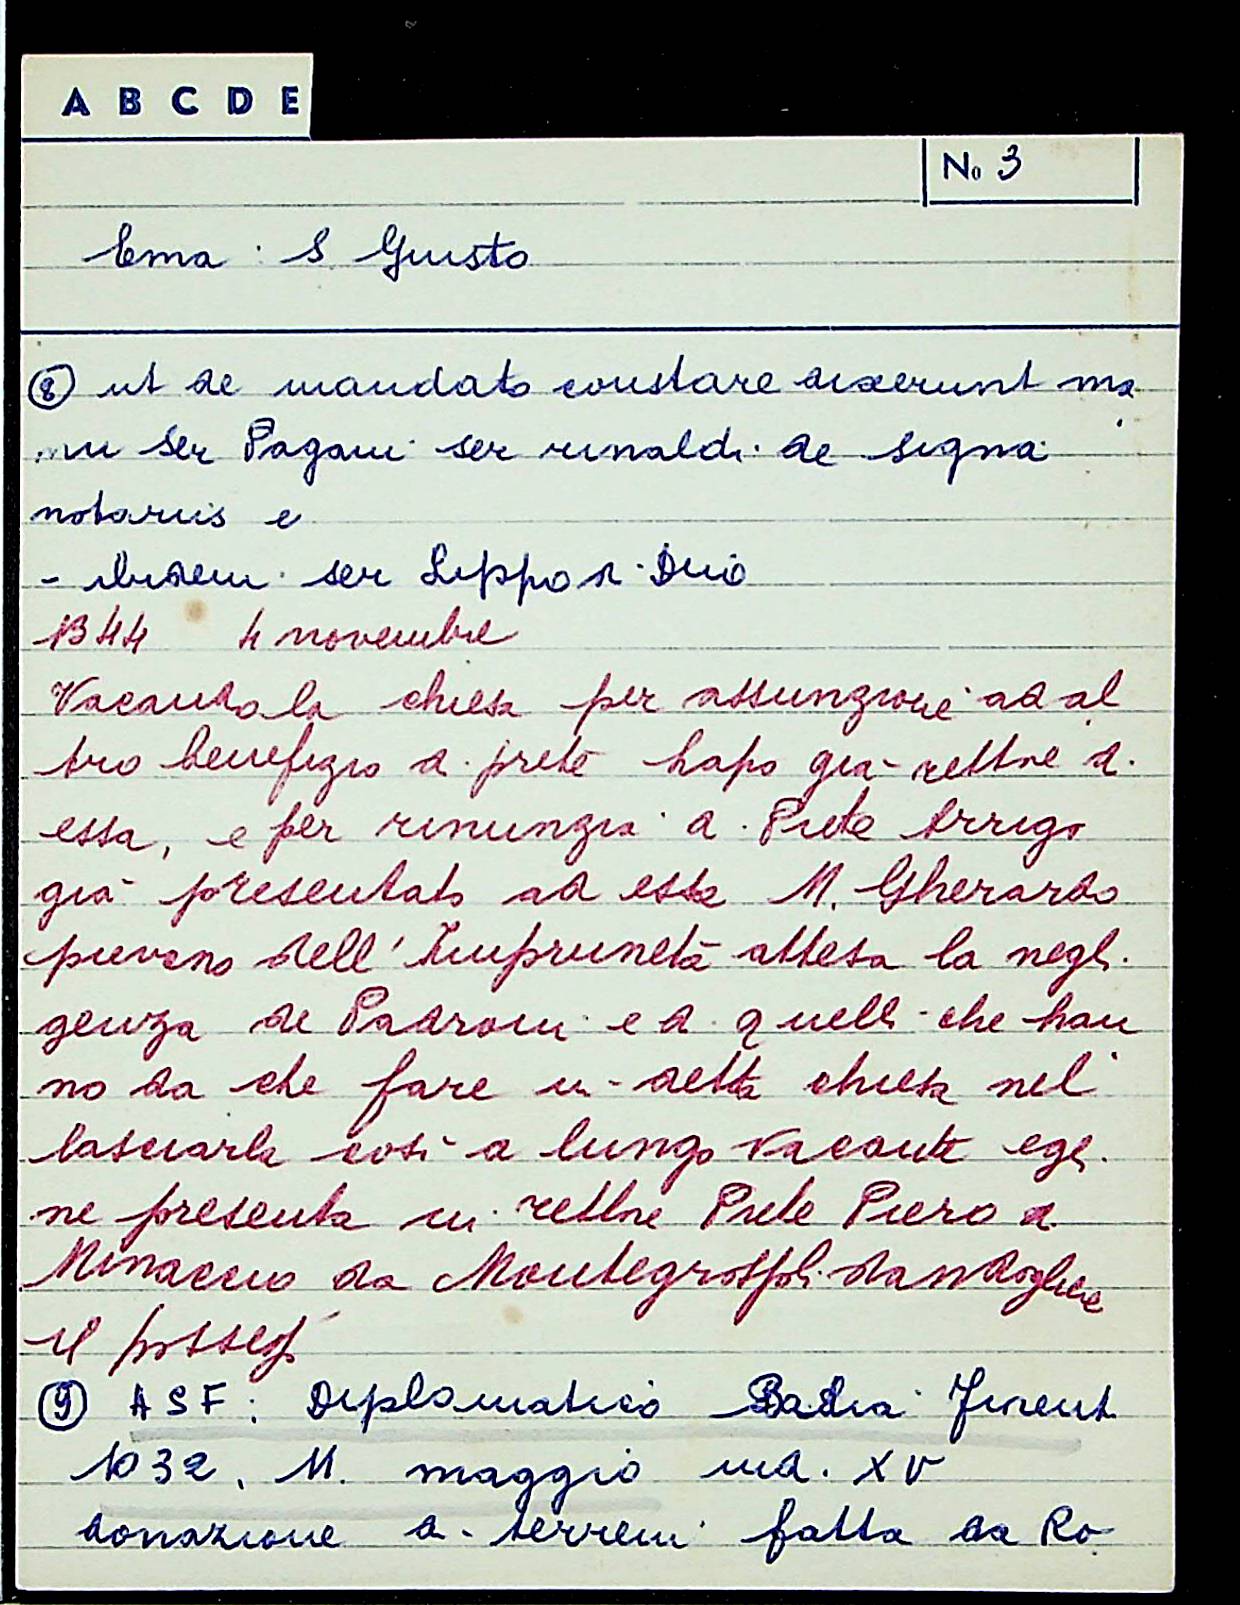 A B C D E
No 3
Ema : S. Giusto
⑧ ut de mandato constare dixerunt ma
nu ser Pagani ser rinaldi de signa
notariis e
- ibidem ser Lippo di Duio
1344 4 novembre
Vacando la chiesa per assunzione ad al
tro benefizio di prete Lapo già rettore di
essa, e per rinunzia di Prete Arrigo
già presentato ad essa M. Gherardo
pievano dell'Impruneta attesa la negli
genza de Padroni e di quelli che han
no da che fare in detta chiesa nel
lasciarla così a lungo vacante egli
ne presenta in rettore Prete Piero di
Minaccio da Montegrossoli dandogliene
il possesso
⑨ ASF: Diplomatico Badia Fiorent.
1032, 11. maggio ind. XV
donazione di terreni fatta da Ro